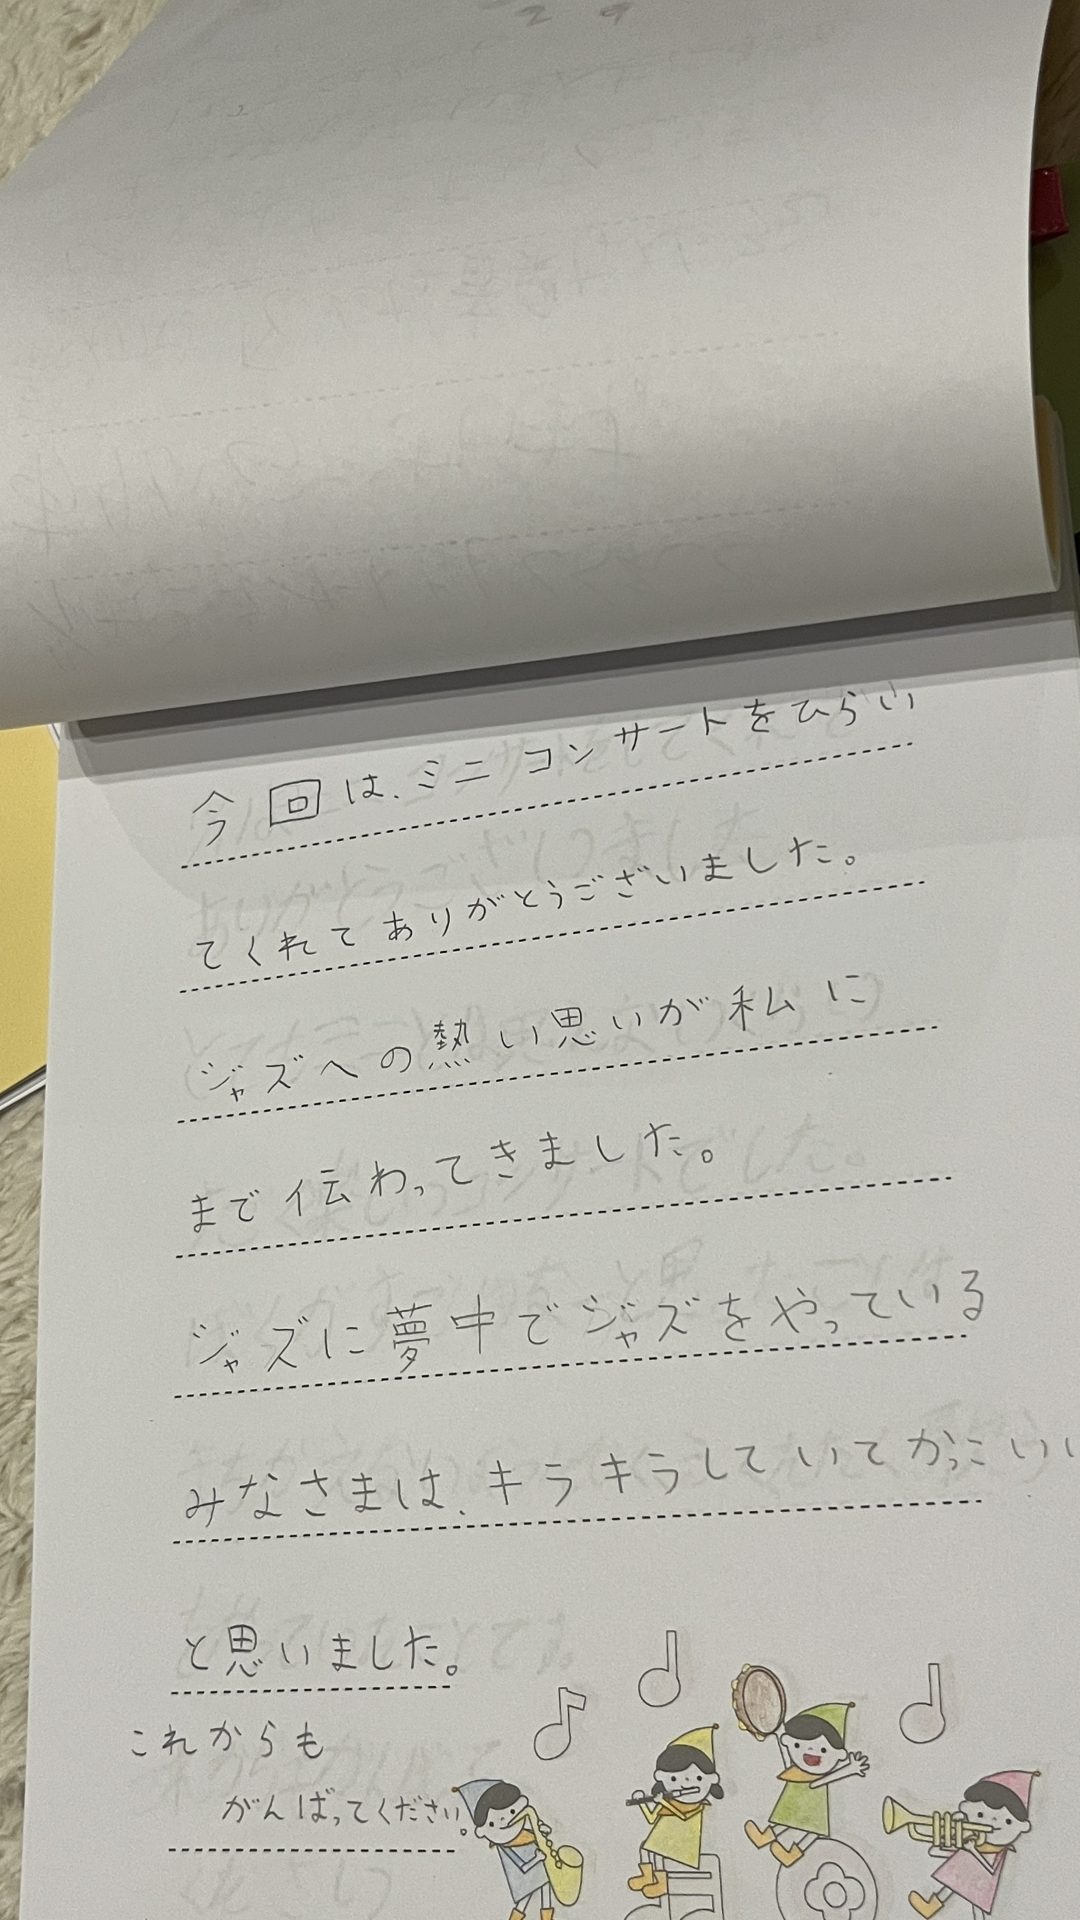 今回は、ミニコンサートをひらい
てくれてありがとうございました。
ジャズへの熱い思いが私に
まで伝わってきました。
ジャズに夢中でジャズをやっている
みなさまは、キラキラしていてかっこいい
と思いました。
これからも
がんばってください。